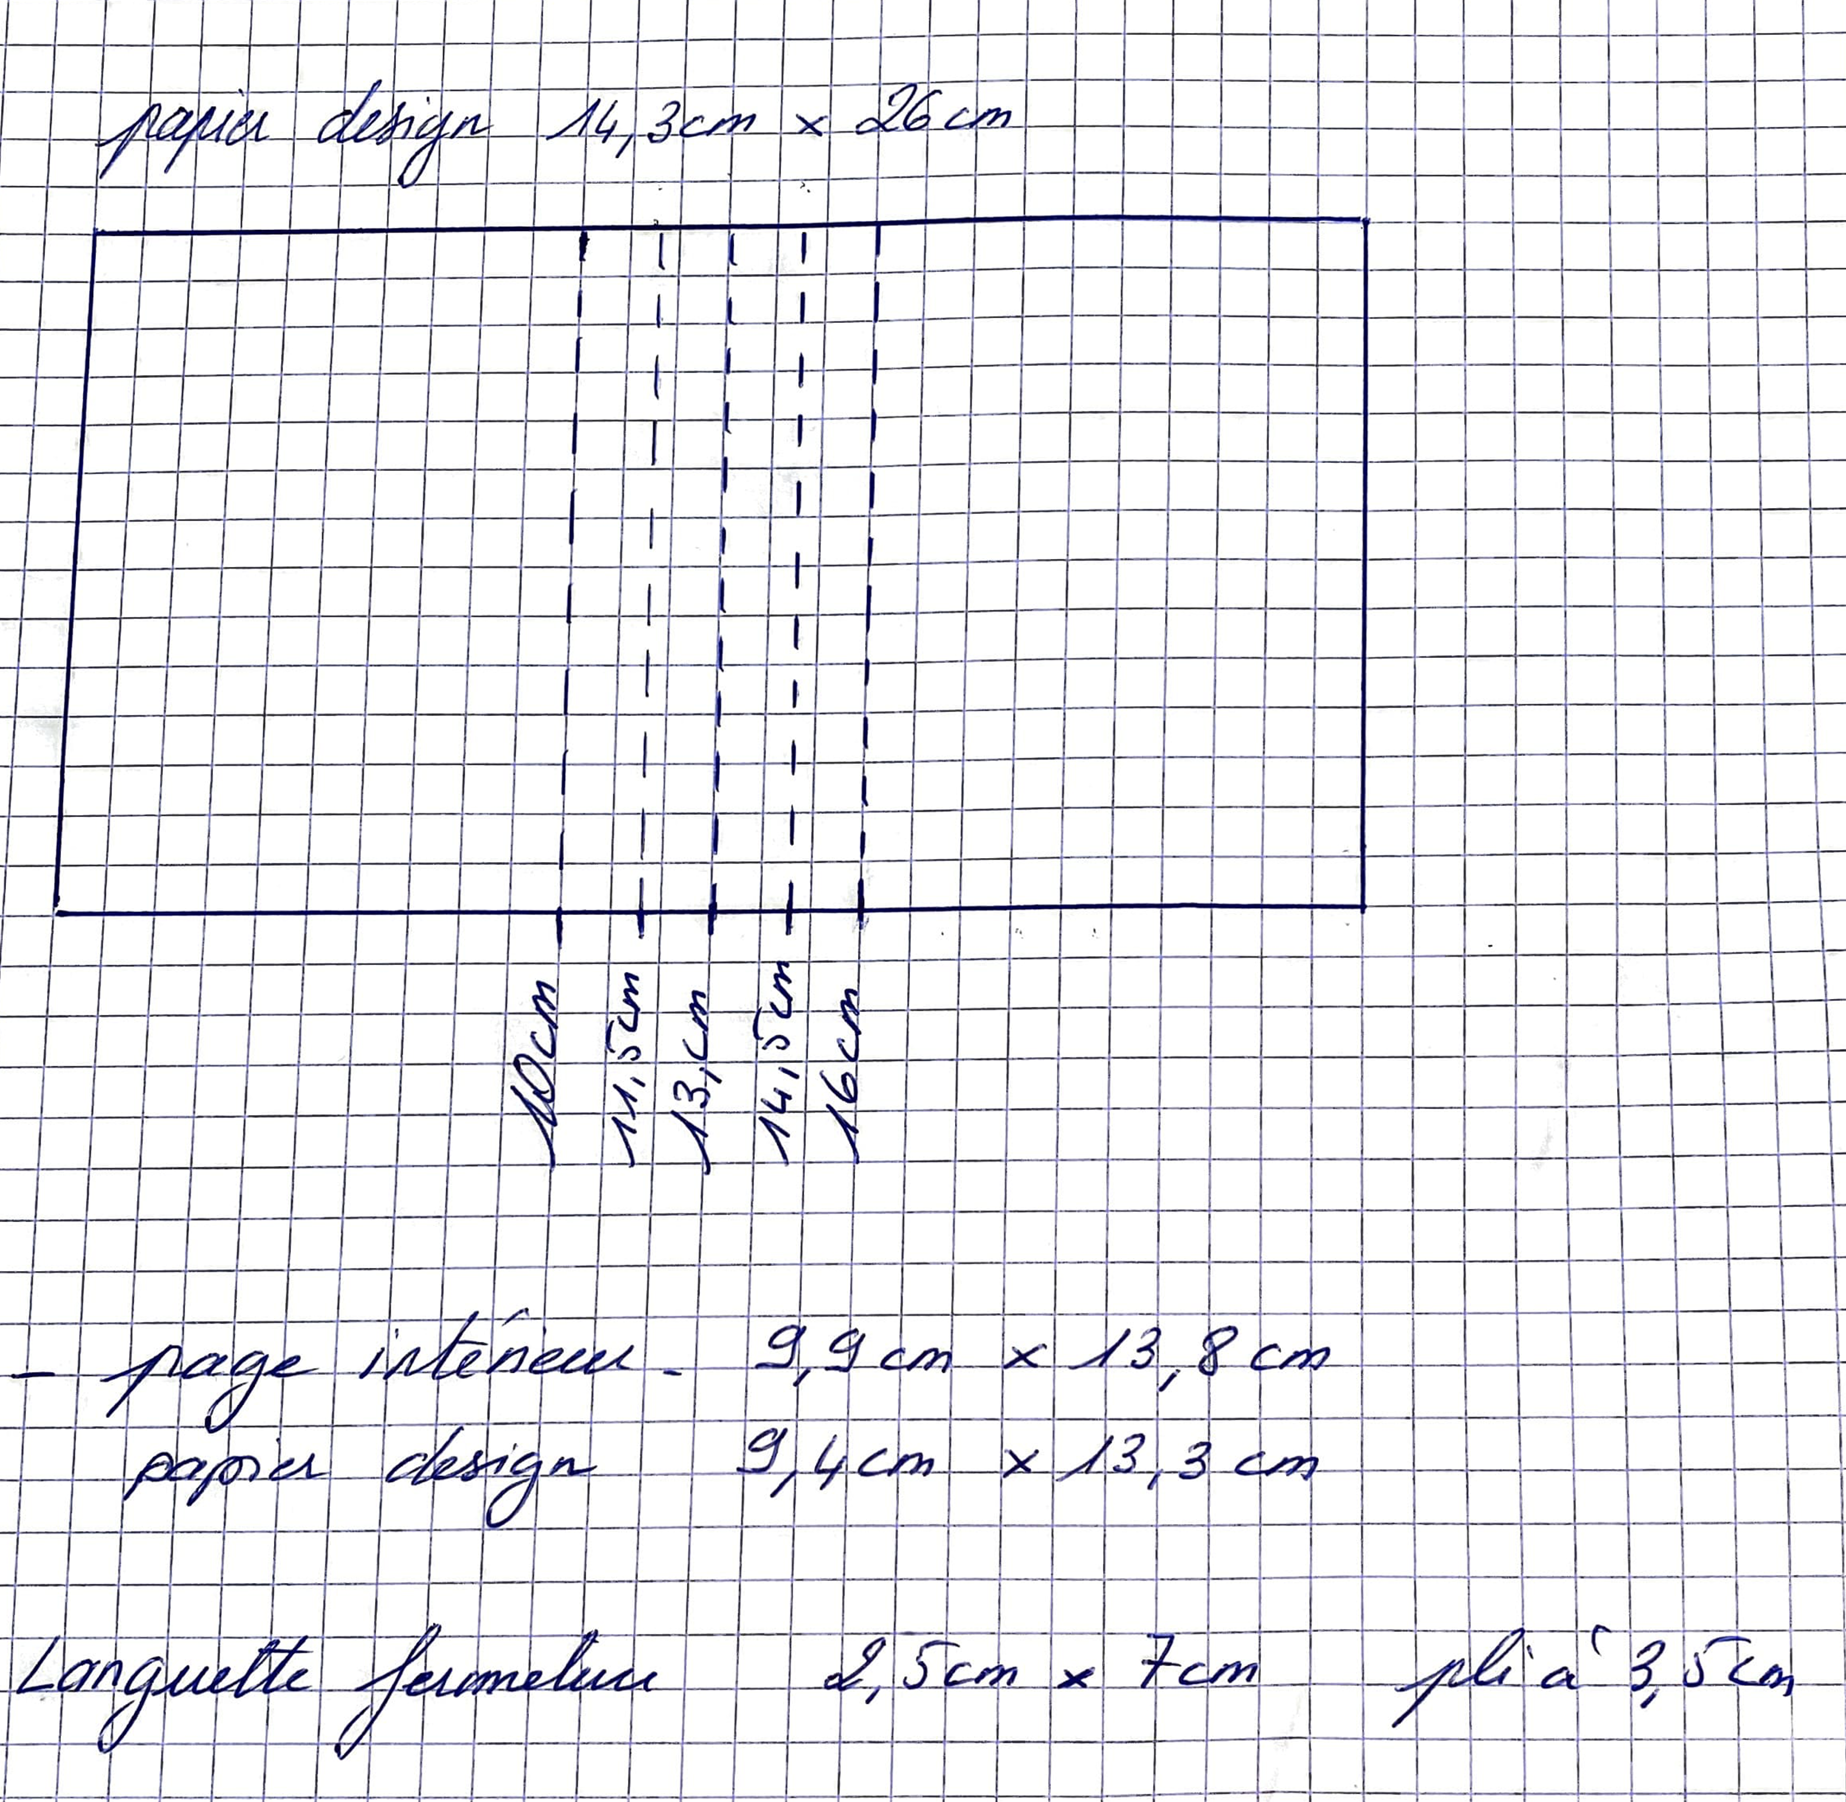 papier design 14,3cm x 26cm
10cm
11,5cm
13,cm
14,5cm
16cm
- page intérieur - 9,9cm x 13,8cm
papier design 9,4cm x 13,3cm
Languette fermeture 2,5cm x 7cm pli à 3,5cm